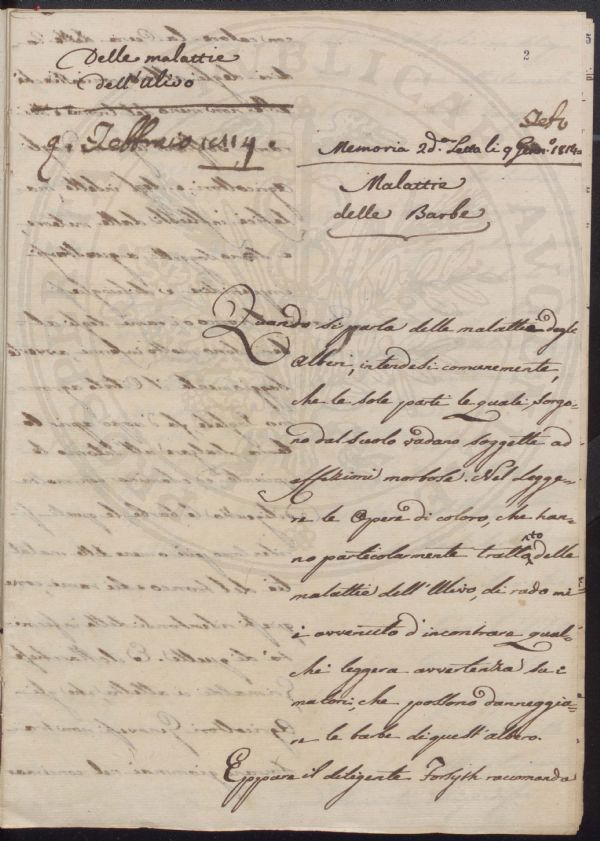 2
Delle malattie
dell'Ulivo
9. Febbraio 1814.
Memoria 2da. Letta li 9 1814
Malattie
delle Barbe
Quando si parla delle malattie degle
alberi, intendesi comunemente,
che le sole parti le quali sorgo-
no dal suolo vadano soggette ad
affezioni morbose. Nel legge-
re le Opere di coloro, che han-
no particolarmente trattato delle
malattie dell'Ulivo, di rado mi
è avvenuto d'incontrare qual-
che leggera avvertenza su i
malori, che possono danneggia-
re le barbe di quest'albero.
Eppure il diligente Forsyth racomanda